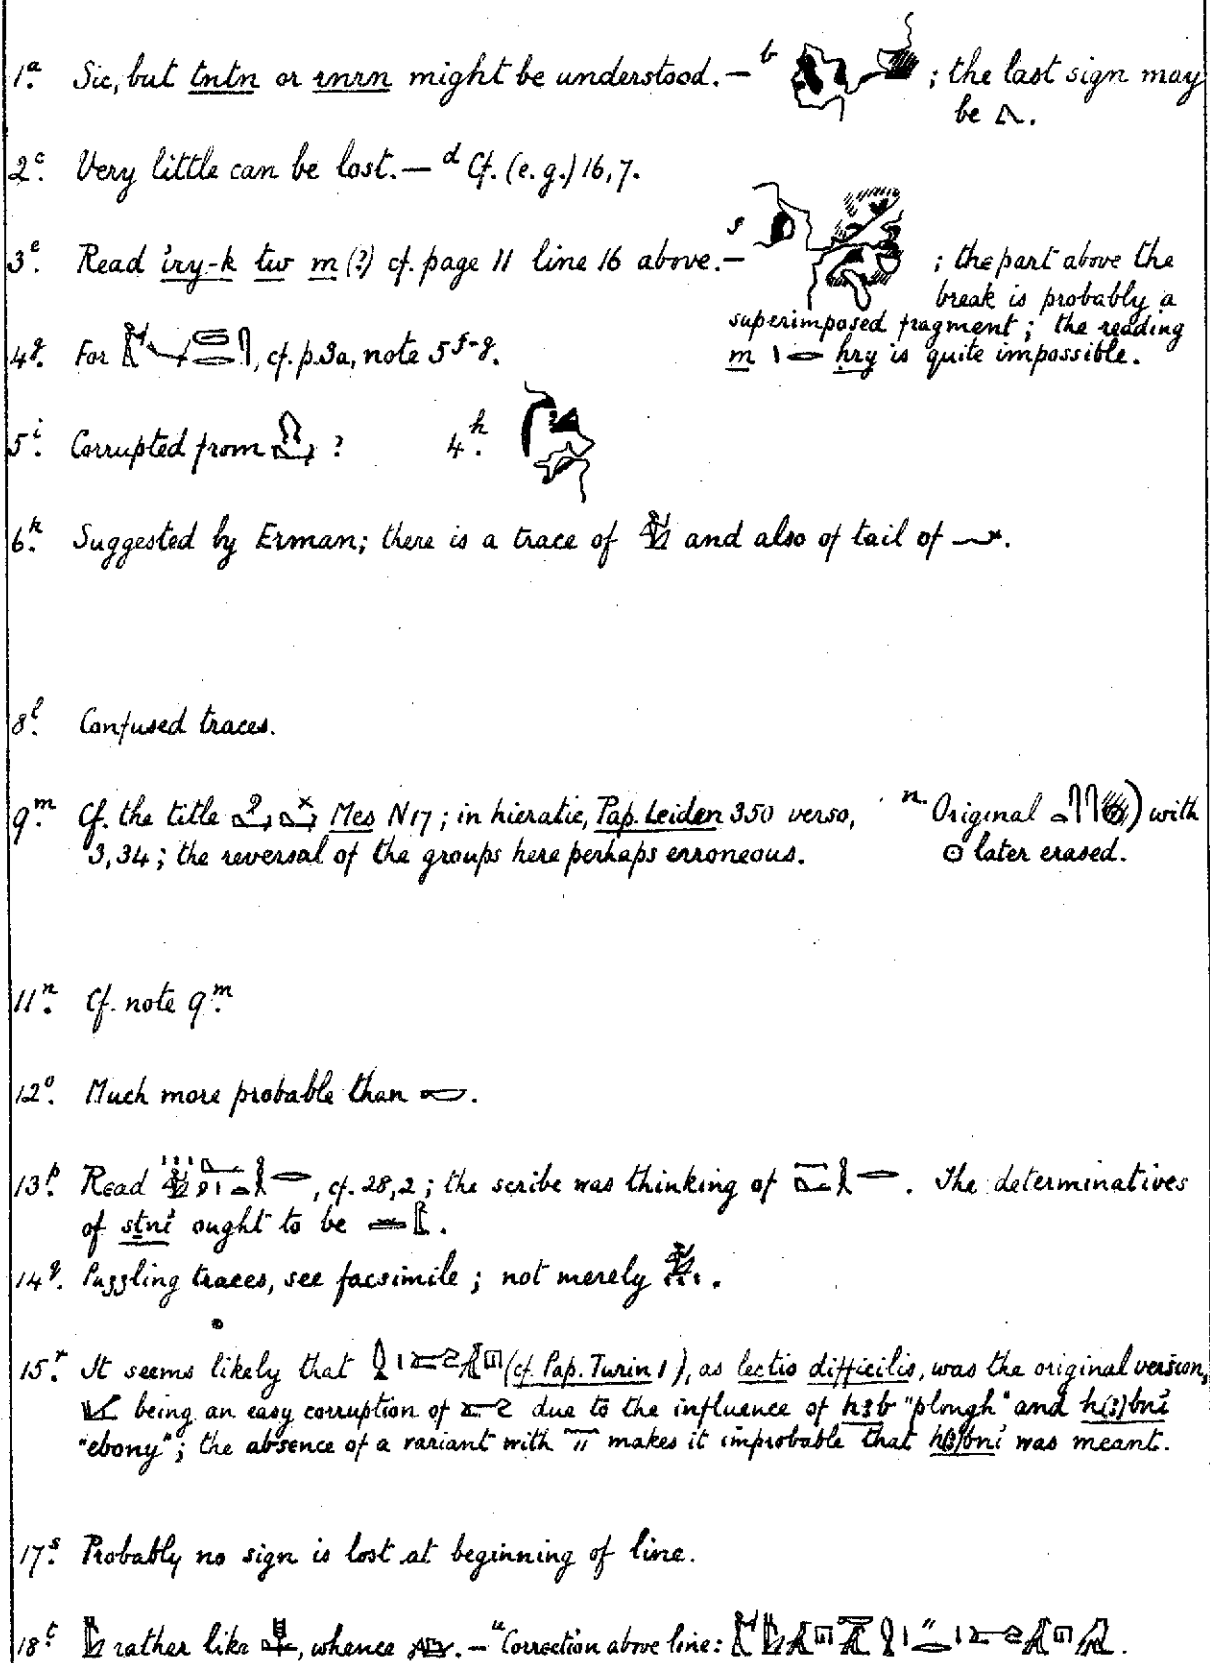 1a. Sic, but tntn or rnrn might be understood. — b ; the last sign may
be
2c. Very little can be lost. — d Cf. (e.g.) 16,7.
3e. Read iry-k tw m (?) cf. page 11 line 16 above. — f ; the part above the
break is probably a
superimposed fragment; the reading
m hry is quite impossible.
4g. For , cf. p. 3a, note 5 f-g.
5i. Corrupted from ? 4h.
6k. Suggested by Erman; there is a trace of and also of tail of .
8l. Confused traces.
9m. Cf. the title Mes N17; in hieratic, Pap. Leiden 350 verso,
3,34; the reversal of the groups here perhaps erroneous.
n. Original with
later erased.
11n. Cf. note 9m.
12o. Much more probable than .
13p. Read , cf. 28,2; the scribe was thinking of . The determinatives
of stni ought to be .
14q. Puzzling traces, see facsimile; not merely .
15r. It seems likely that (cf. Pap. Turin 1), as lectio difficilis, was the original version,
being an easy corruption of due to the influence of h3b "plough" and h(3)bni
"ebony"; the absence of a variant with makes it improbable that h(3)bni was meant.
17s. Probably no sign is lost at beginning of line.
18t. rather like , whence . — u Correction above line: .